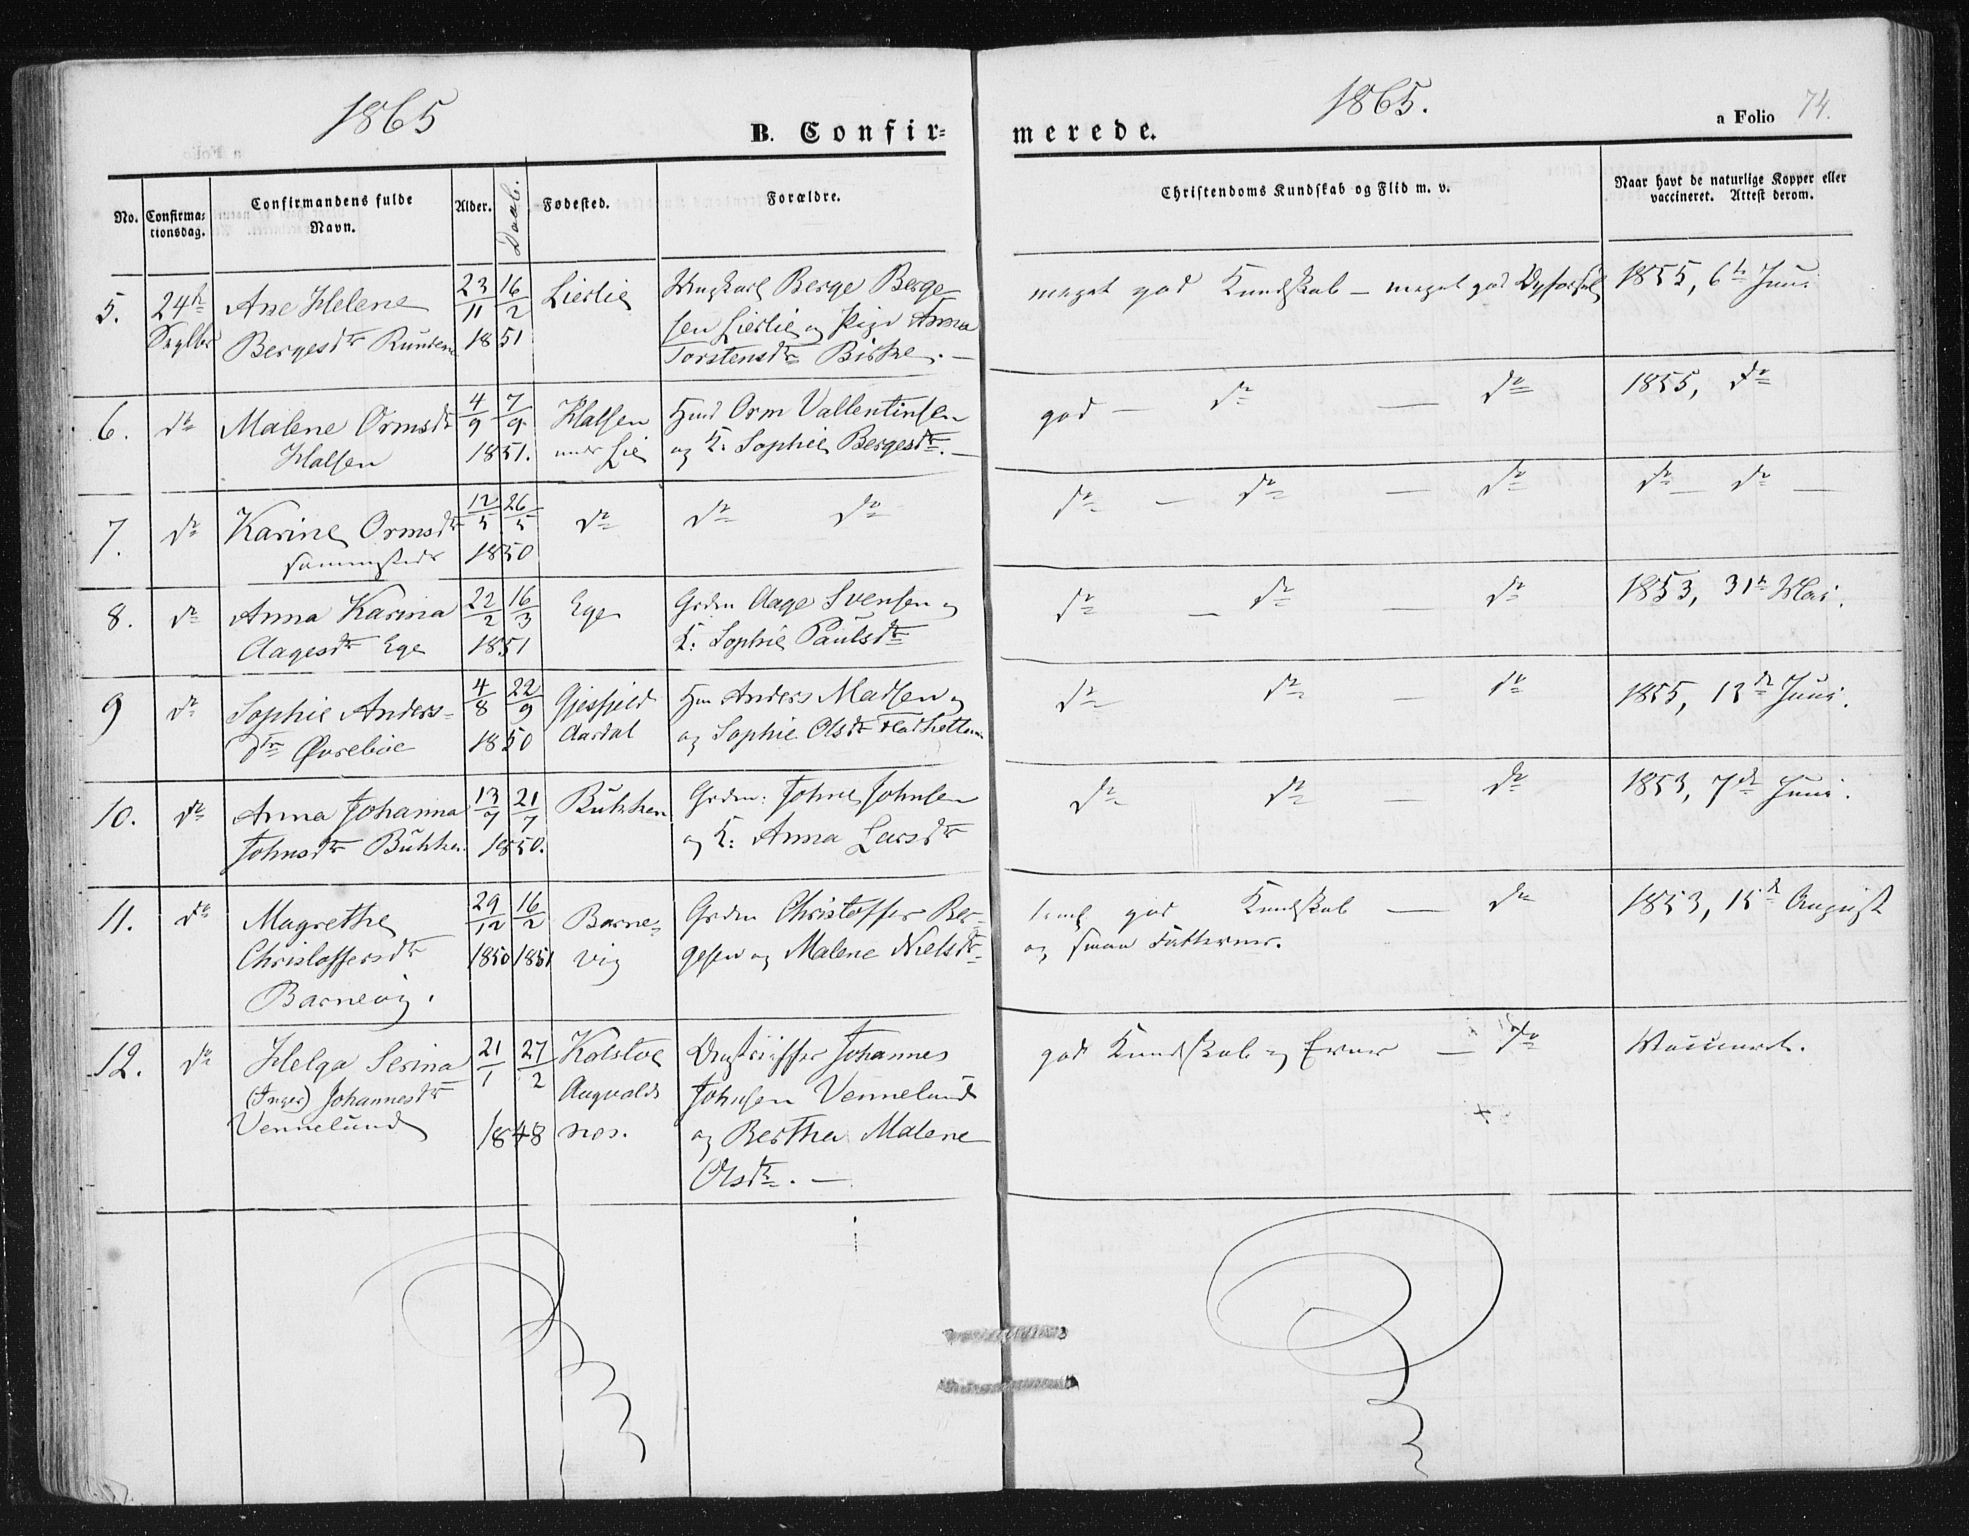 1865
B. Confir-
No.
Confirma-
tionsdag.
Confirmandens fulde
Navn.
Alder.
Daab.
Fødested.
Forældre.
5.
24de
Septbr
Ane Helene
Bergesdtr
23/11
16/2
1851
Lierlie
Berge Berge-
sen Lierlie og Pige Anna
Torstensdtr Birke. —
6.
do
Malene Ormsdtr
Halsen
4/9
7/9
1851.
Halsen
under Lie
Hmd Orm Vallentinsen
og K. Sophie Bergesdtr. —
7.
do
Karine Ormsdtr
sammesteds
12/5
26/5
1850
do
do do
8.
do
Anna Karina
Aagesdtr Ege
22/2
16/3
1851
Ege
Grdm Aage Svensen og
K: Sophie Paulsdtr
9
do
Sophie Anders-
dtr Øvrebøe
4/8
22/9
1850
Gjesfjeld
Aardal
Anders Madsen og
og Sophie Olsdtr
10.
do
Anna Johanna
Johnsdtr Bukken
13/7
21/7
1850.
Bukken
Grdm: John Johnsen
og K: Anna Larsdtr
11.
do
Magrethe
Christoffersdtr
Barnevig.
29/12
16/2
1850
1851
Barne-
vig
Grdm Christoffer Ber-
gesen og Malene Nielsdtr
12.
do
Helga Serina
(Inger) Johannesdtr
Vennelund
21/1
27/2
1848
Kolstoe
Augvalds
nes.
Johannes
Johnsen Vennelund
og Bertha Malene
Olsdtr. —
1865.
merede.
a Folio 74.
Christendoms Kundskab og Flid m. v.
Naar havt de naturlige Kopper eller
vaccineret. Attest derom.
meget god Kundskab — meget god Opførsel
1855, 6te Juni
god — do — do
1855, do
do — do — do
do — do —
do — do — do
1853, 31te Mai.
do do — do
1855, 13de Juni.
do do — do
1853, 7de Juni.
teml. god Kundskab — do
og smaa
1853, 15de August
god Kundskab og — do
Vaccineret.